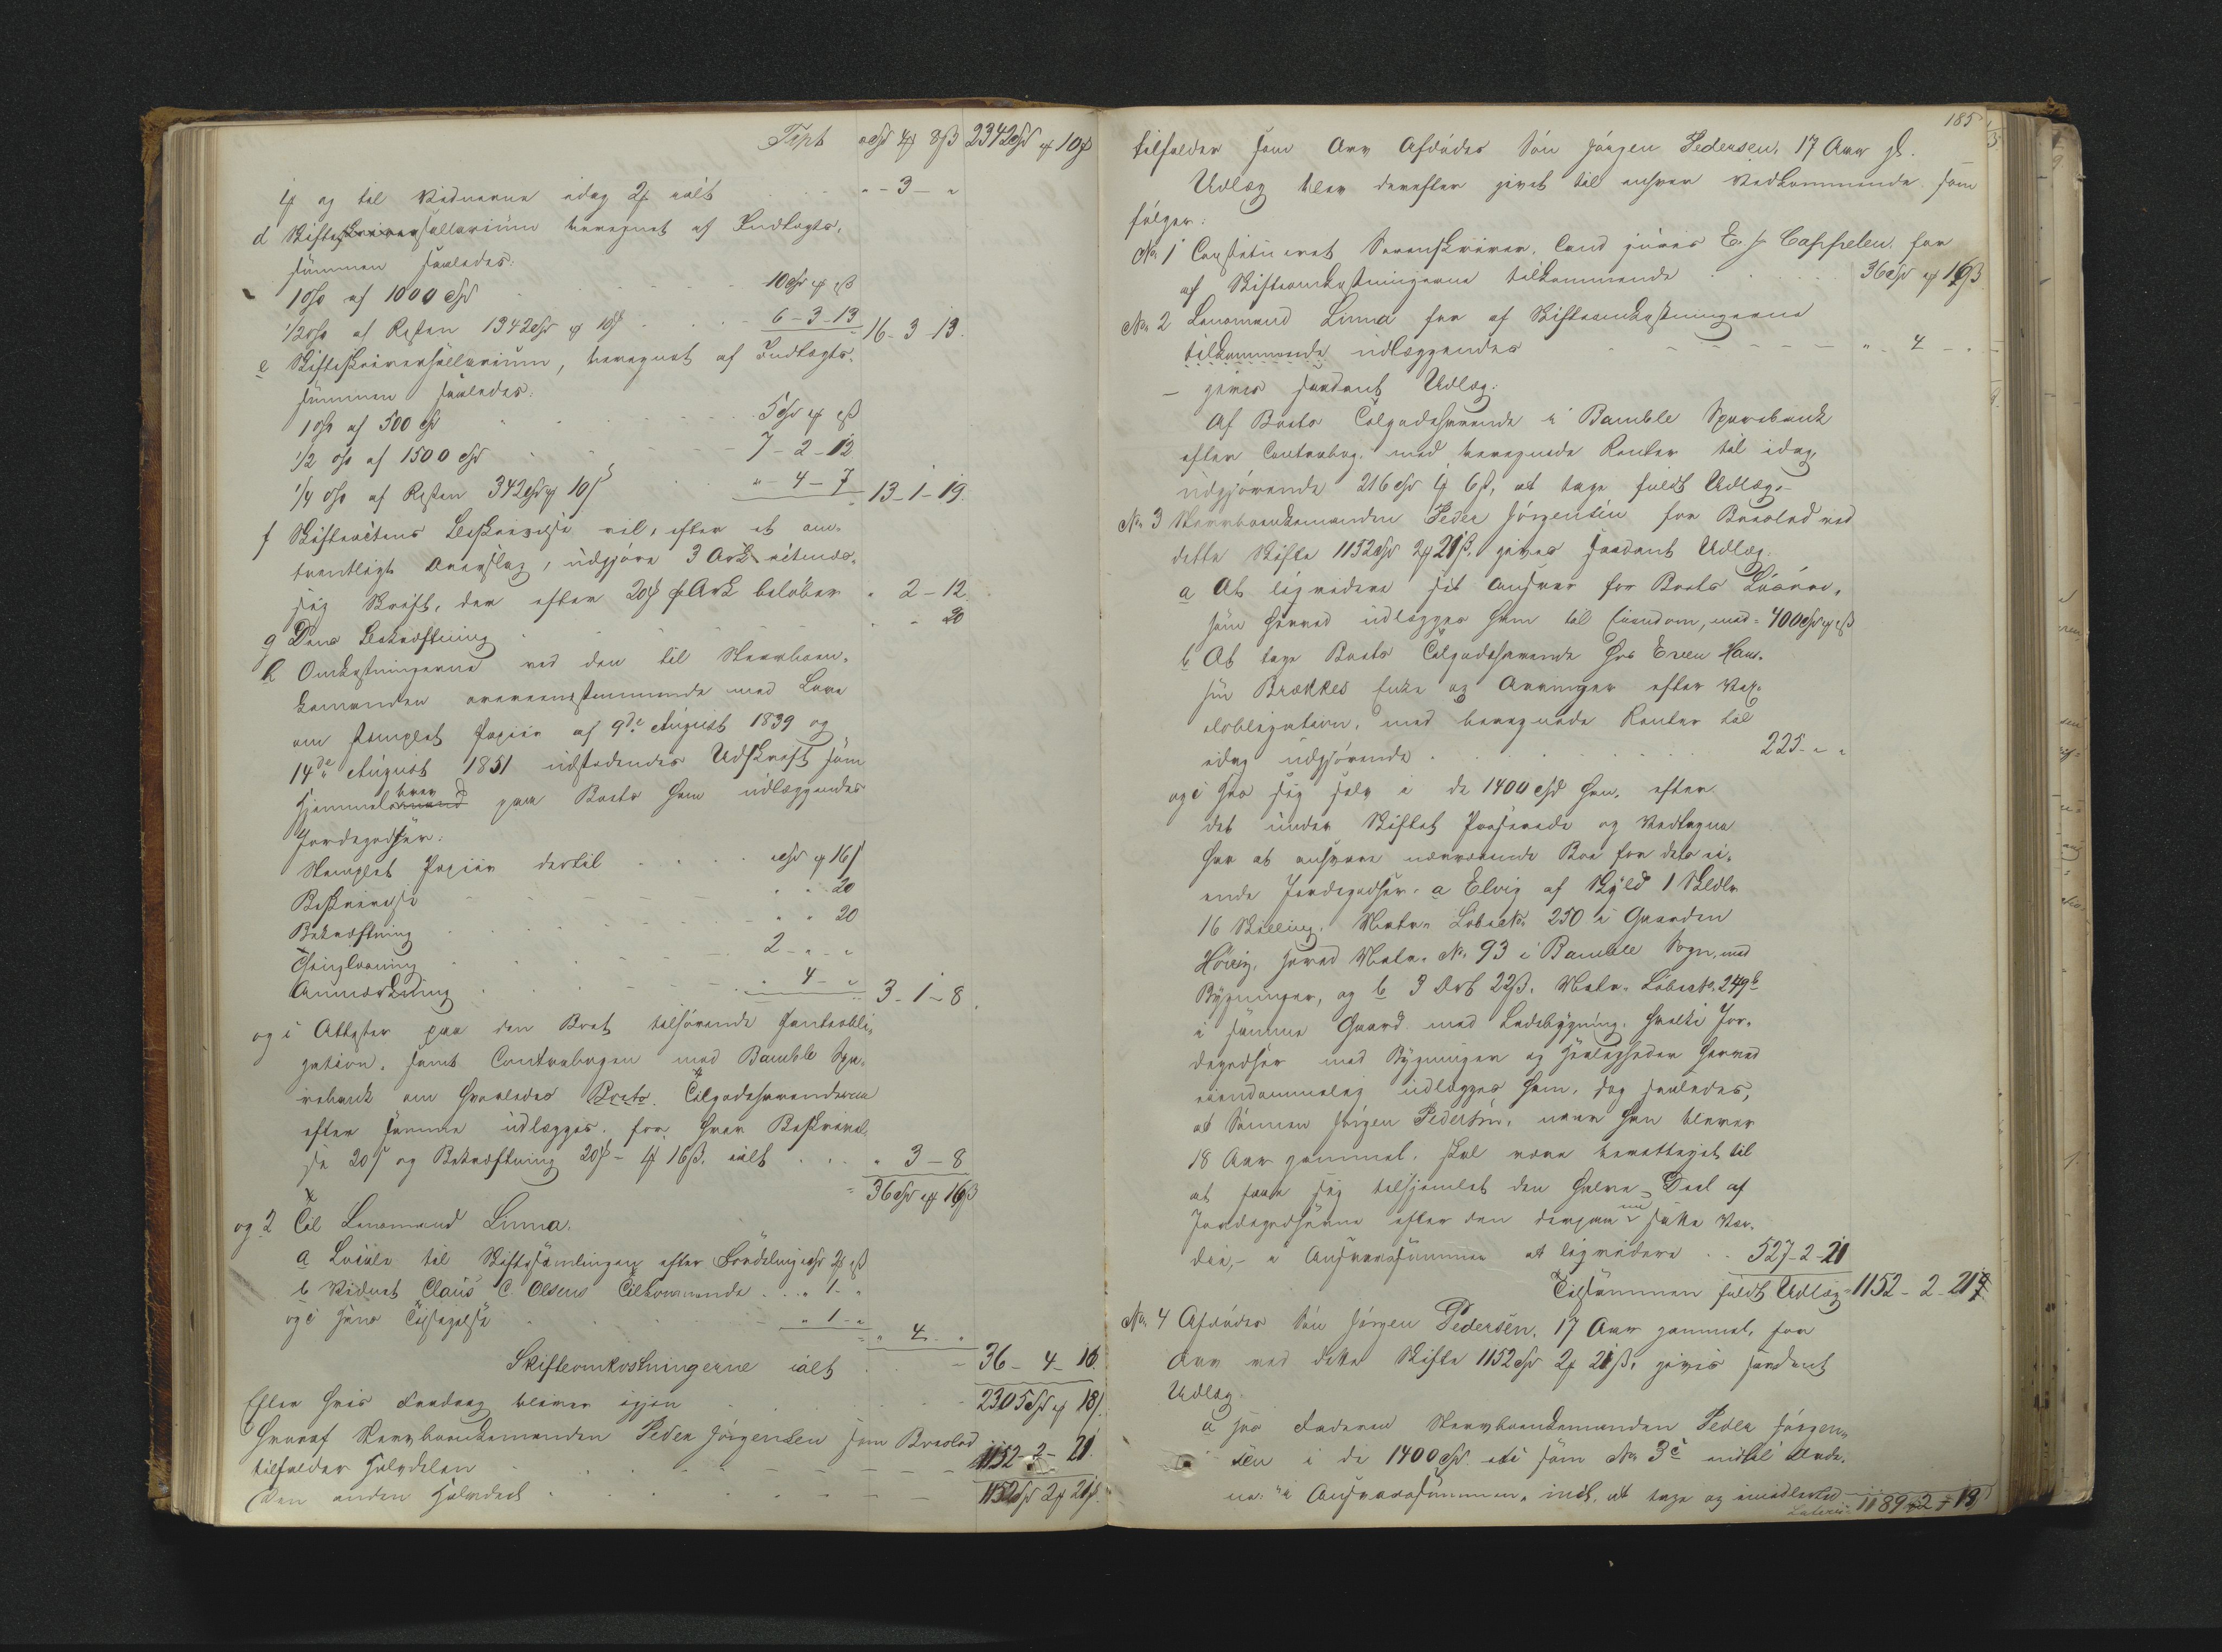 Tspt " Spd 4 ƒ 8 ß 2342 Spd " ƒ 10 ß
1 ƒ og til Vidnerne idag 2 ƒ ialt " - 3 - "
d Skifteskriversallarium beregnet af Indtægts-
summen saaledes:
1 o/o af 1000 Spd 10 Spd " ƒ " ß
1/2 o/o af Resten 1342 Spd " ƒ 10 ß 6 - 3 - 13 16 - 3 - 13.
e Skifteskriversallarium, beregnet af Indtægts-
summen saaledes:
1 o/o af 500 Spd 5 Spd " ƒ " ß
1/2 o/o af 1500 Spd 7 - 2 - 12
1/4 o/o af Resten 342 Spd " ƒ 10 ß " - 4 - 7 13 - 1 - 19.
f Skifteactens Beskrivelse vil, efter et om-
trentligt Overslag, udgjøre 3 Ark
Skrift, der efter 20 ß pr Ark beløber " 2 - 12
g Dens Bekræftning " - 20
h Omkostningerne ved den til Stervboen-
kemanden overeenstemmende med Love
om stemplet Papiir af 9de August 1839 og
14de August 1851 udstedendes Udskrift som
Hjemmelsbrev paa Boets ham udlæggendes
Jordegodser:
Stemplet Papiir dertil " Spd " ƒ 16 ß
Beskrivelse " " 20
Bekræftning " " 20
Thinglæsning 2 - " - "
Anmærkning " 4 - " 3 - 1 - 8.
og i Attester paa den Boet tilhørende Panteobli-
gation, samt Contrabogen med Bamble Spa-
rebank om hvorledes Boets Tilgodehavenderne
efter samme udlægges, for hver Beskrivel-
se 20 ß og Bekræftning 20 ß - 1 ƒ 16 ß, ialt " 3 - 8
36 Spd " ƒ 16 ß
og 2 Til Lensmand Linna.
a Locale til Skiftesamlingen efter Fordeling " Spd 2 ƒ " ß
b Vidnet Claus C Olsens Tilkommende " 1 - "
og c Hans Tilsigelse " 1 - " " 4 - "
Skifteomkostningerne ialt 36 - 4 - 16.
Efter hvis Fradrag bliver igjen 2305 Spd " ƒ 18 ß.
Hvoraf Stervboenkemanden Peder Jørgensen som Boeslod
tilfalder Halvdelen 1152 - 2 - 21
Den anden Halvdeel 1152 Spd 2 ƒ 21 ß.
185
tilfalder som Arv Afdødes Søn Jørgen Pedersen, 17 Aar gl.
Udlæg blev derefter givet til enhver Vedkommende som
følger:
No 1 Constitueret Sorenskriver, Cand juris E. J. Cappelen, for
af Skifteomkostningerne tilkommende 36 Spd " ƒ 16 ß
No 2 Lensmand Linna for af Skifteomkostningerne
tilkommende udlæggendes " - 4 - "
- gives saadant Udlæg:
Af Boets Tilgodehavende i Bamble Sparebank
efter Contrabog, med beregnede Renter til idag,
udgjørende 216 Spd 1 ƒ 6 ß, at tage fuldt Udlæg.-
No 3 Stervboenkemanden Peder Jørgensen for Boeslod ved
dette Skifte 1152 Spd 2 ƒ 21 ß, gives saadant Udlæg:
a At liqvidere sit Ansvar for Boets Løsøre,
som herved udlægges ham til Eiendom, med 400 Spd " ƒ " ß
b At tage Boets Tilgodehavende hos Even Han-
sen Brækkes Enke og Arvinger efter Pan-
teobligation, med beregnede Renter til
idag udgjørende 225 - " - "
og c hos sig selv i de 1400 Spd han, efter
det under Skiftet Passerede og Vedtagne
har at ansvare nærværende Boe for dets ei-
ende Jordegodser: a Elvig af Skyld 1 Skldlr
16 Skilling, Matr. Løbeno. 250 i Gaarden
Høiery, hoved Matr. No. 93 i Bamble Sogn, med
Bygninger, og b 3 Ort 22 ß, Matr. Løbeno. 249 b
i samme Gaard med Ladebygning, hvilke Jor-
degodser med Bygninger og Herligheder herved
eiendommelig udlægges ham, dog saaledes,
at Sønnen Jørgen Pedersen, naar han bliver
18 Aar gammel, skal være berettiget til
at faae sig tilhjemlet den halve Deel af
Jordegodserne efter den derpaa nu satte Vær-
die,- i Ansvarssummen at liqvidere 527 - 2 - 21
Tilsammen fuldt Udlæg 1152 - 2 - 21
No. 4 Afdødes Søn Jørgen Pedersen, 17 Aar gammel, for
Arv ved dette Skifte 1152 Spd 2 ƒ 21 ß, gives saadant
Udlæg
a hos Faderen Stervboenkemanden Peder Jørgen-
sen i de 1400 Spd som No 3 c
Ansvarssummen, at tage og imidlertid
Lateris 1189 - 2 - 13